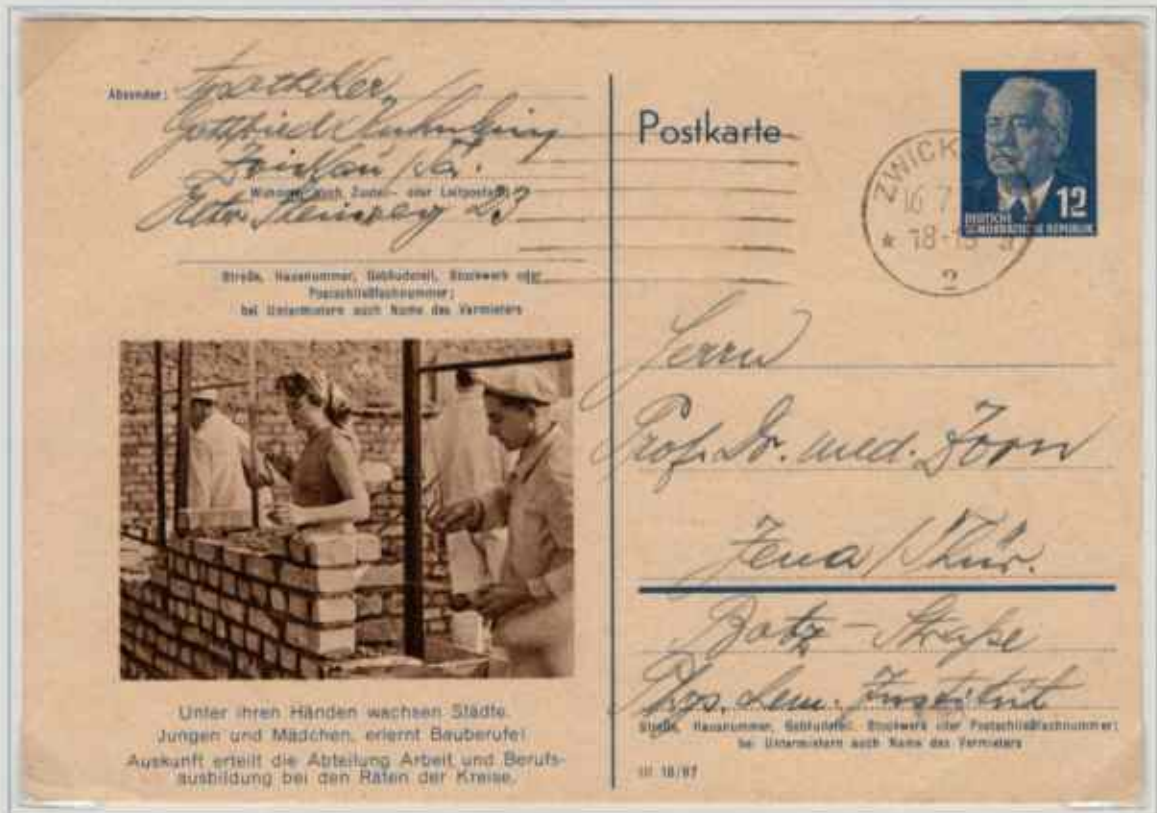 Absender: Apotheker
Gottfried
Zwickau / Sa.
Wohnort, auch Zustell- oder Leitpostamt
Steinweg 23
Straße, Hausnummer, Gebäudeteil, Stockwerk oder
Postschließfachnummer;
bei Untermietern auch Name des Vermieters
Unter ihren Händen wachsen Städte.
Jungen und Mädchen, erlernt Bauberufe!
Auskunft erteilt die Abteilung Arbeit und Berufs-
ausbildung bei den Räten der Kreise.
Postkarte
ZWICK
16.7.
18-19
2
12
DEUTSCHE
DEMOKRATISCHE REPUBLIK
Herrn
Prof. Dr. med. Zorn
Jena / Thür.
Straße
Institut
Straße, Hausnummer, Gebäudeteil, Stockwerk oder Postschließfachnummer;
bei Untermietern auch Name des Vermieters
III 18/97